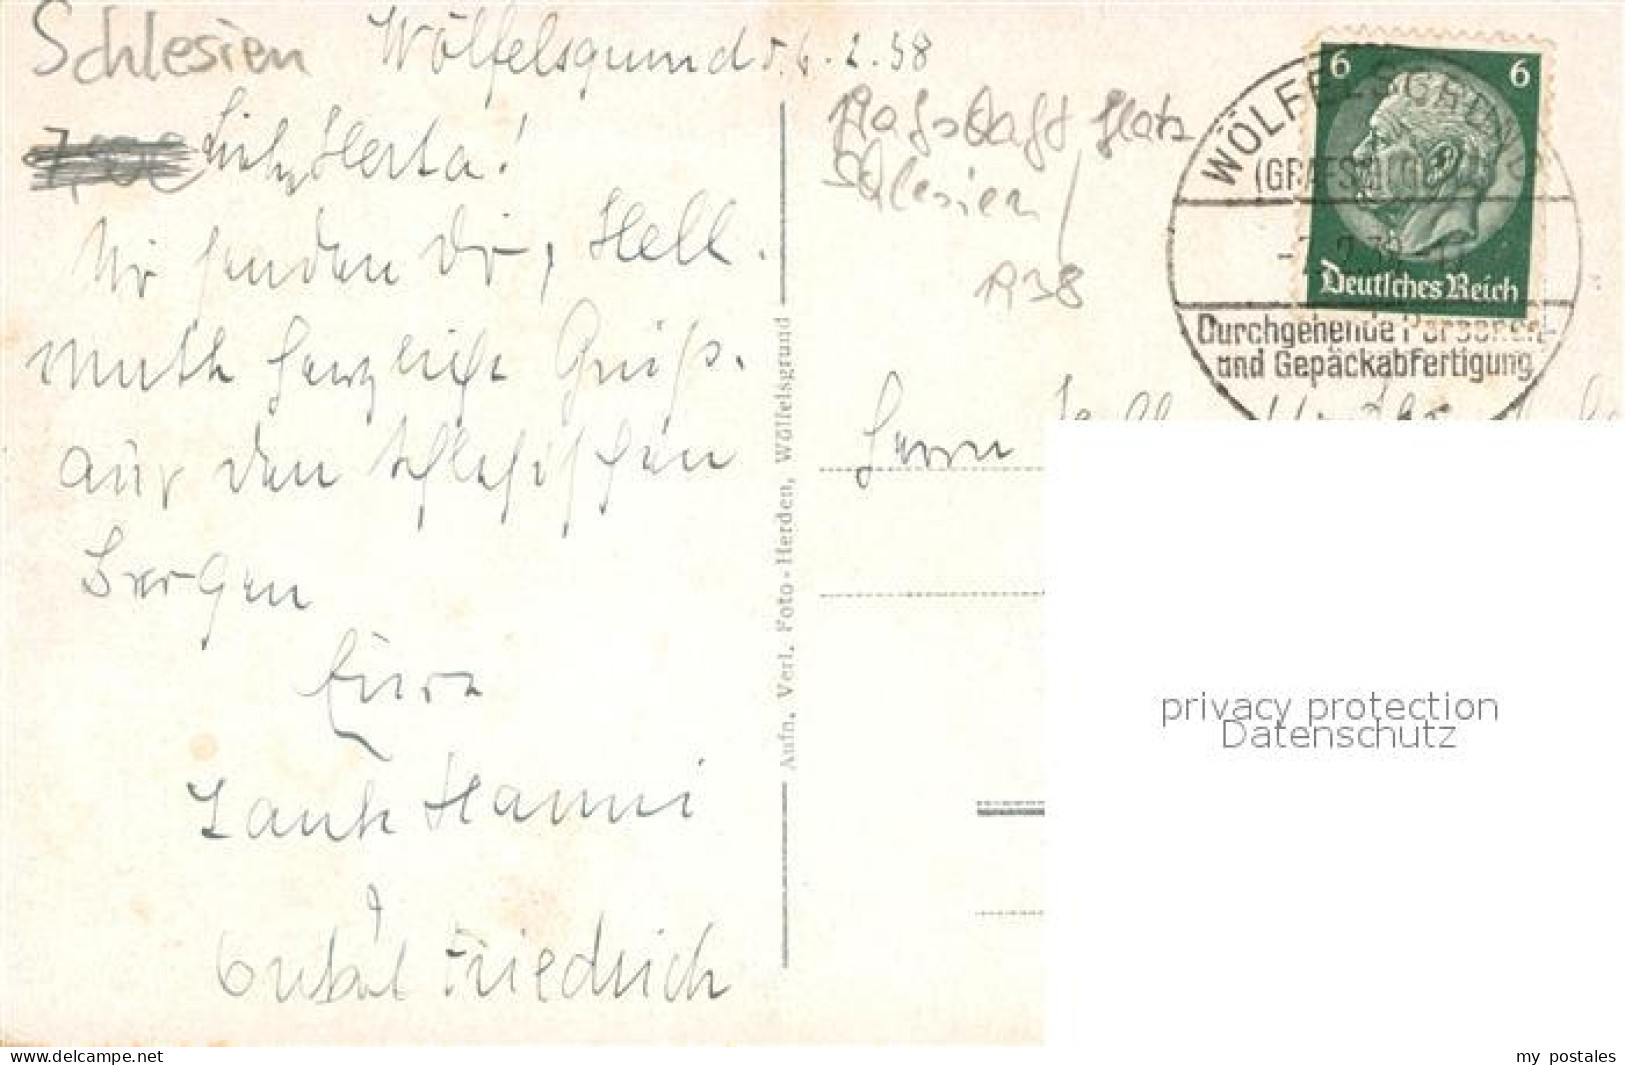 Schlesien Wölfelsgrund 6.2.38
Liebe Herta!
Wir senden Dir, Hell.
muth herzliche Grüße.
aus den schlesischen
Bergen
Eure
Tante Hanni
Onkel Friedrich
Aufn. Verl. Foto-Herden, Wölfelsgrund
Grafschaft Glatz
Schlesien
R38
WÖLFELSGRUND
6 6
Deutsches Reich
Durchgehende Personen-
und Gepäckabfertigung
Herrn
privacy protection
Datenschutz
www.delcampe.net
my postales